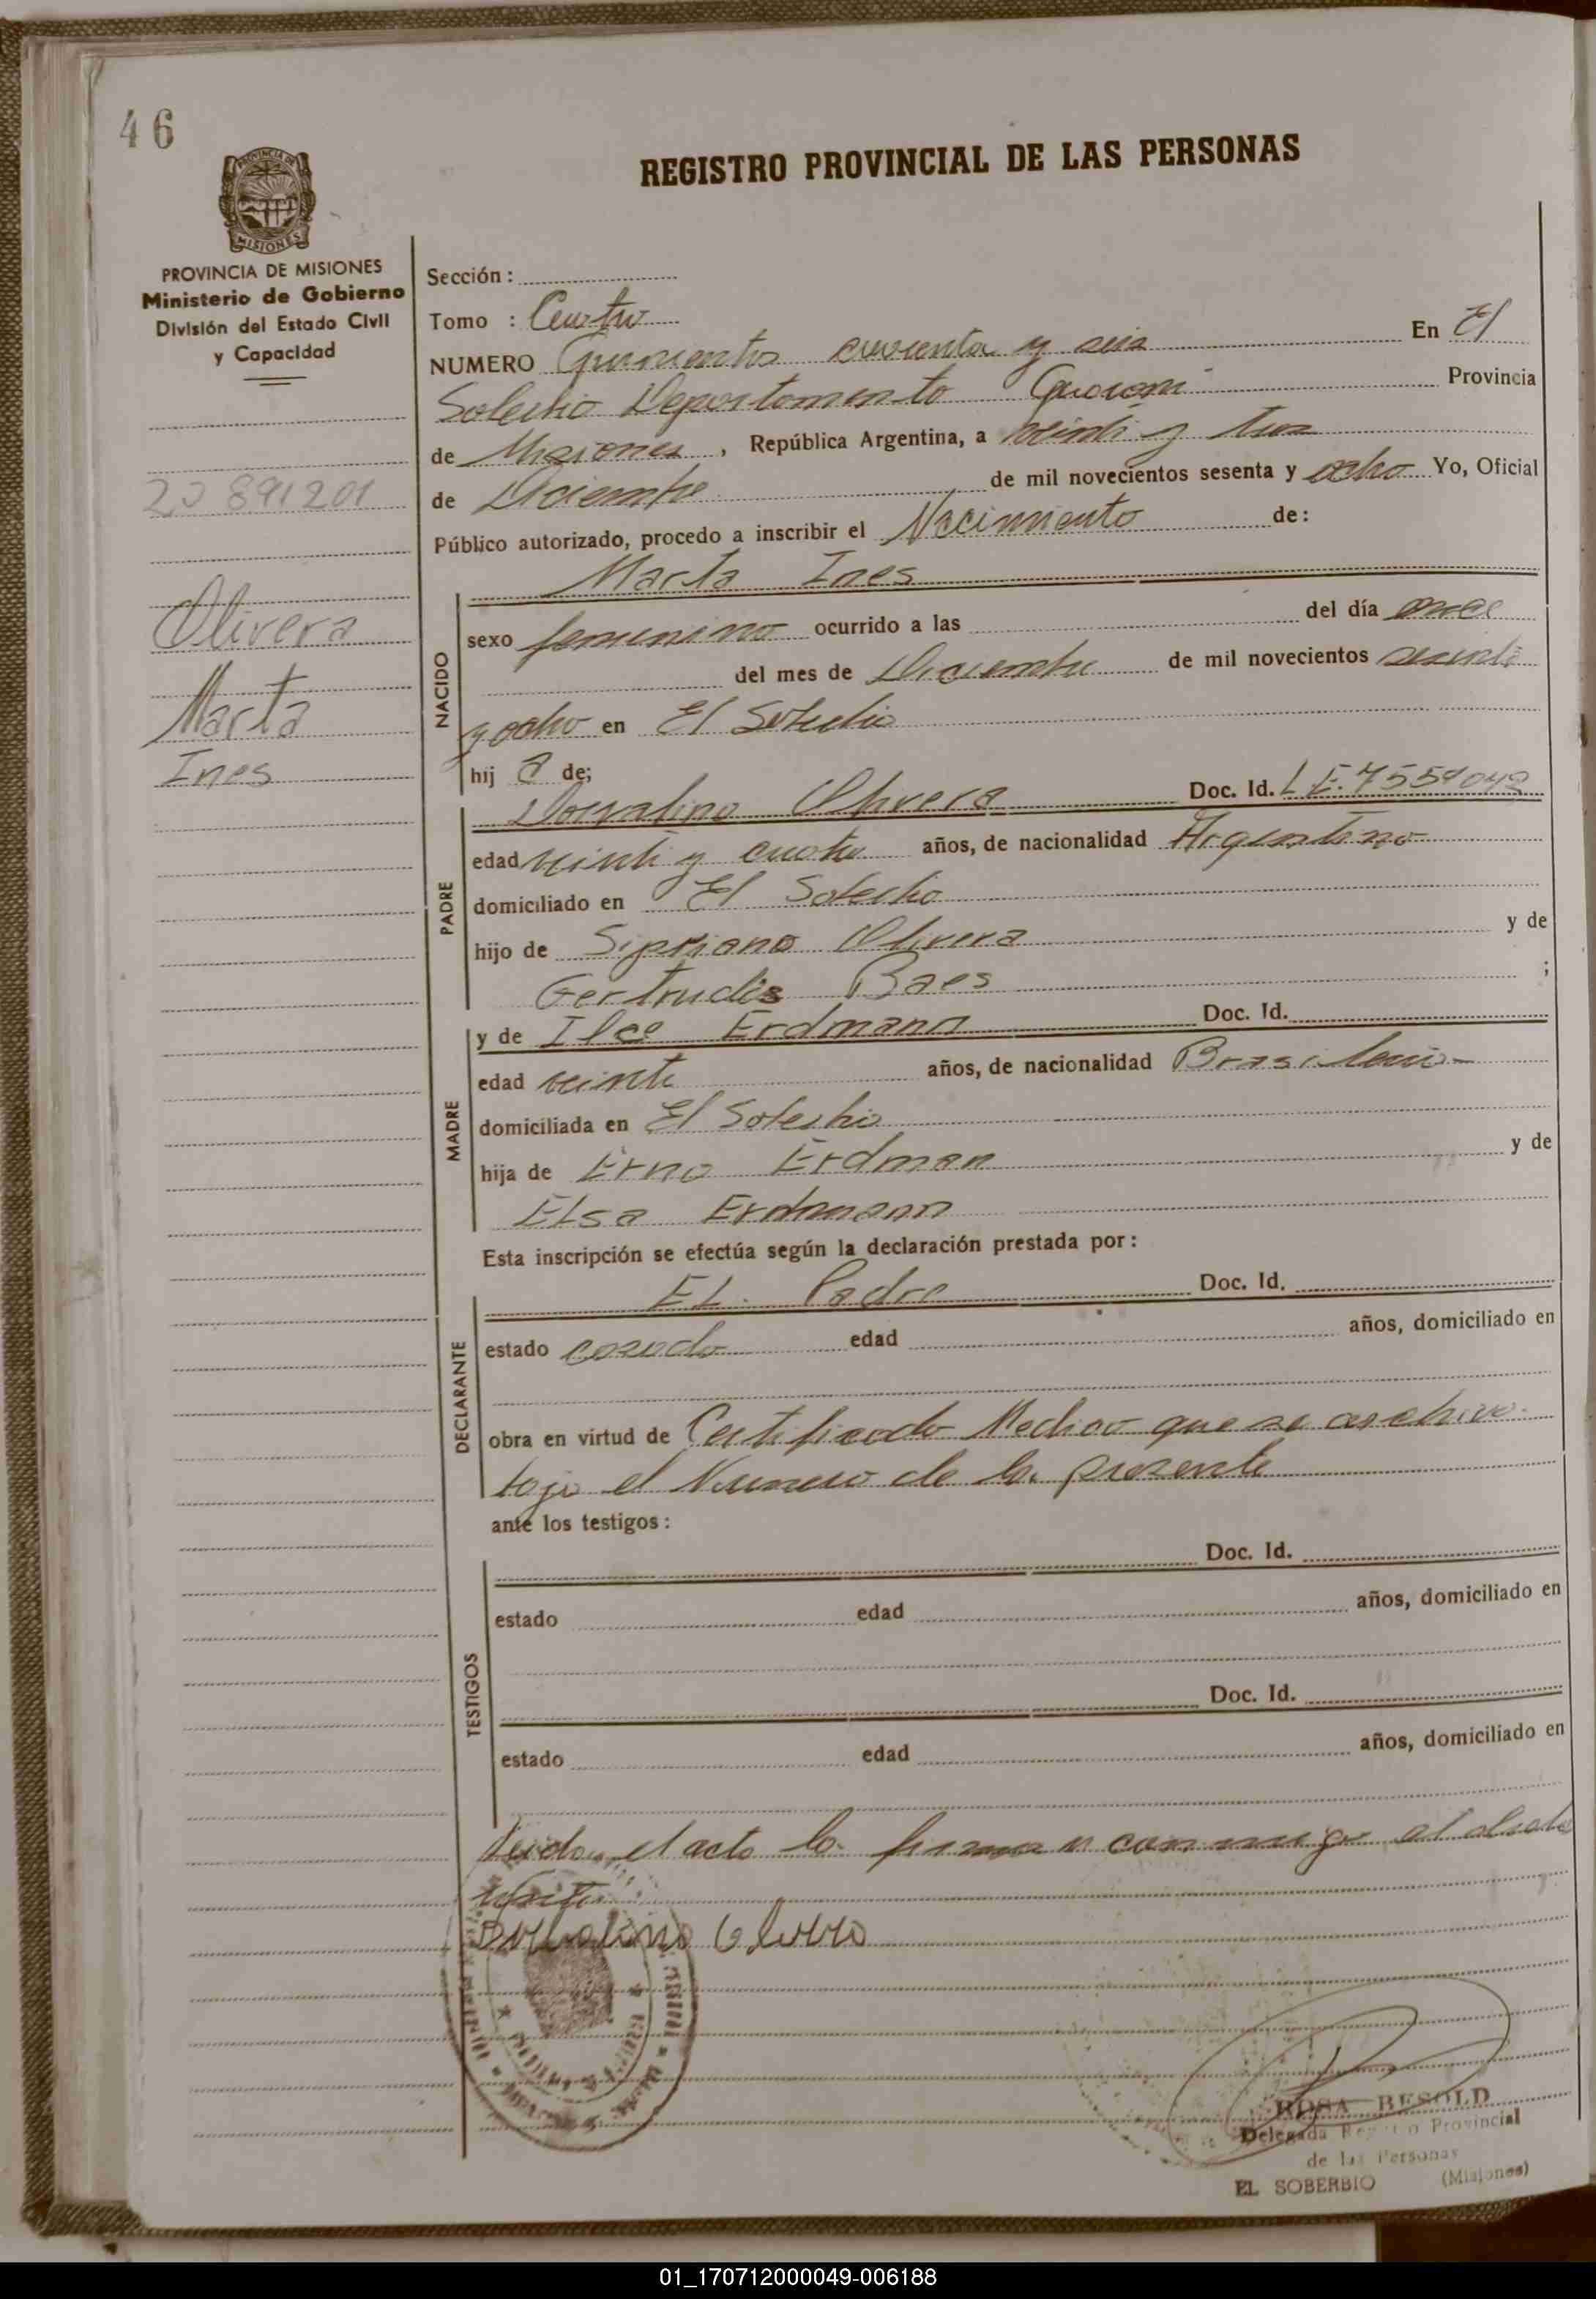 46
REGISTRO PROVINCIAL DE LAS PERSONAS
PROVINCIA DE
MISIONES
PROVINCIA DE MISIONES
Ministerio de Gobierno
División del Estado Civil
y Capacidad
20 891201
Olivera
Marta
Ines
Sección :
Tomo : Cuatro
NUMERO Quinientos cuarenta y seis En El
Soberbio Departamento Guarani Provincia
de Misiones, República Argentina, a veinti y tres
de Diciembre de mil novecientos sesenta y ocho Yo, Oficial
Público autorizado, procedo a inscribir el Nacimiento de:
Marta Ines
NACIDO
sexo femenino ocurrido a las del día once
del mes de Diciembre de mil novecientos sesenta
y ocho en El Soberbio
hij a de;
PADRE
Dorvalino Olivera Doc. Id. L E. 7554048
edad veinti y cuatro años, de nacionalidad Argentino
domiciliado en El Soberbio
hijo de Sipriano Olivera y de
Gertrudis Baes ;
MADRE
y de Ilce Erdmann Doc. Id.
edad veinte años, de nacionalidad Brasilera
domiciliada en El Soberbio
hija de Erno Erdman y de
Elsa Erdmann
Esta inscripción se efectúa según la declaración prestada por :
DECLARANTE
EL Padre Doc. Id.
estado casado edad años, domiciliado en
obra en virtud de Certificado Medico que se archiva
bajo el Numero de la presente
ante los testigos :
TESTIGOS
Doc. Id.
estado edad años, domiciliado en
Doc. Id.
estado edad años, domiciliado en
Leida el acta la firman conmigo el
ROSA BESOLD
Delegada Registro Provincial
de las Personas
EL SOBERBIO (Misiones)
01_170712000049-006188